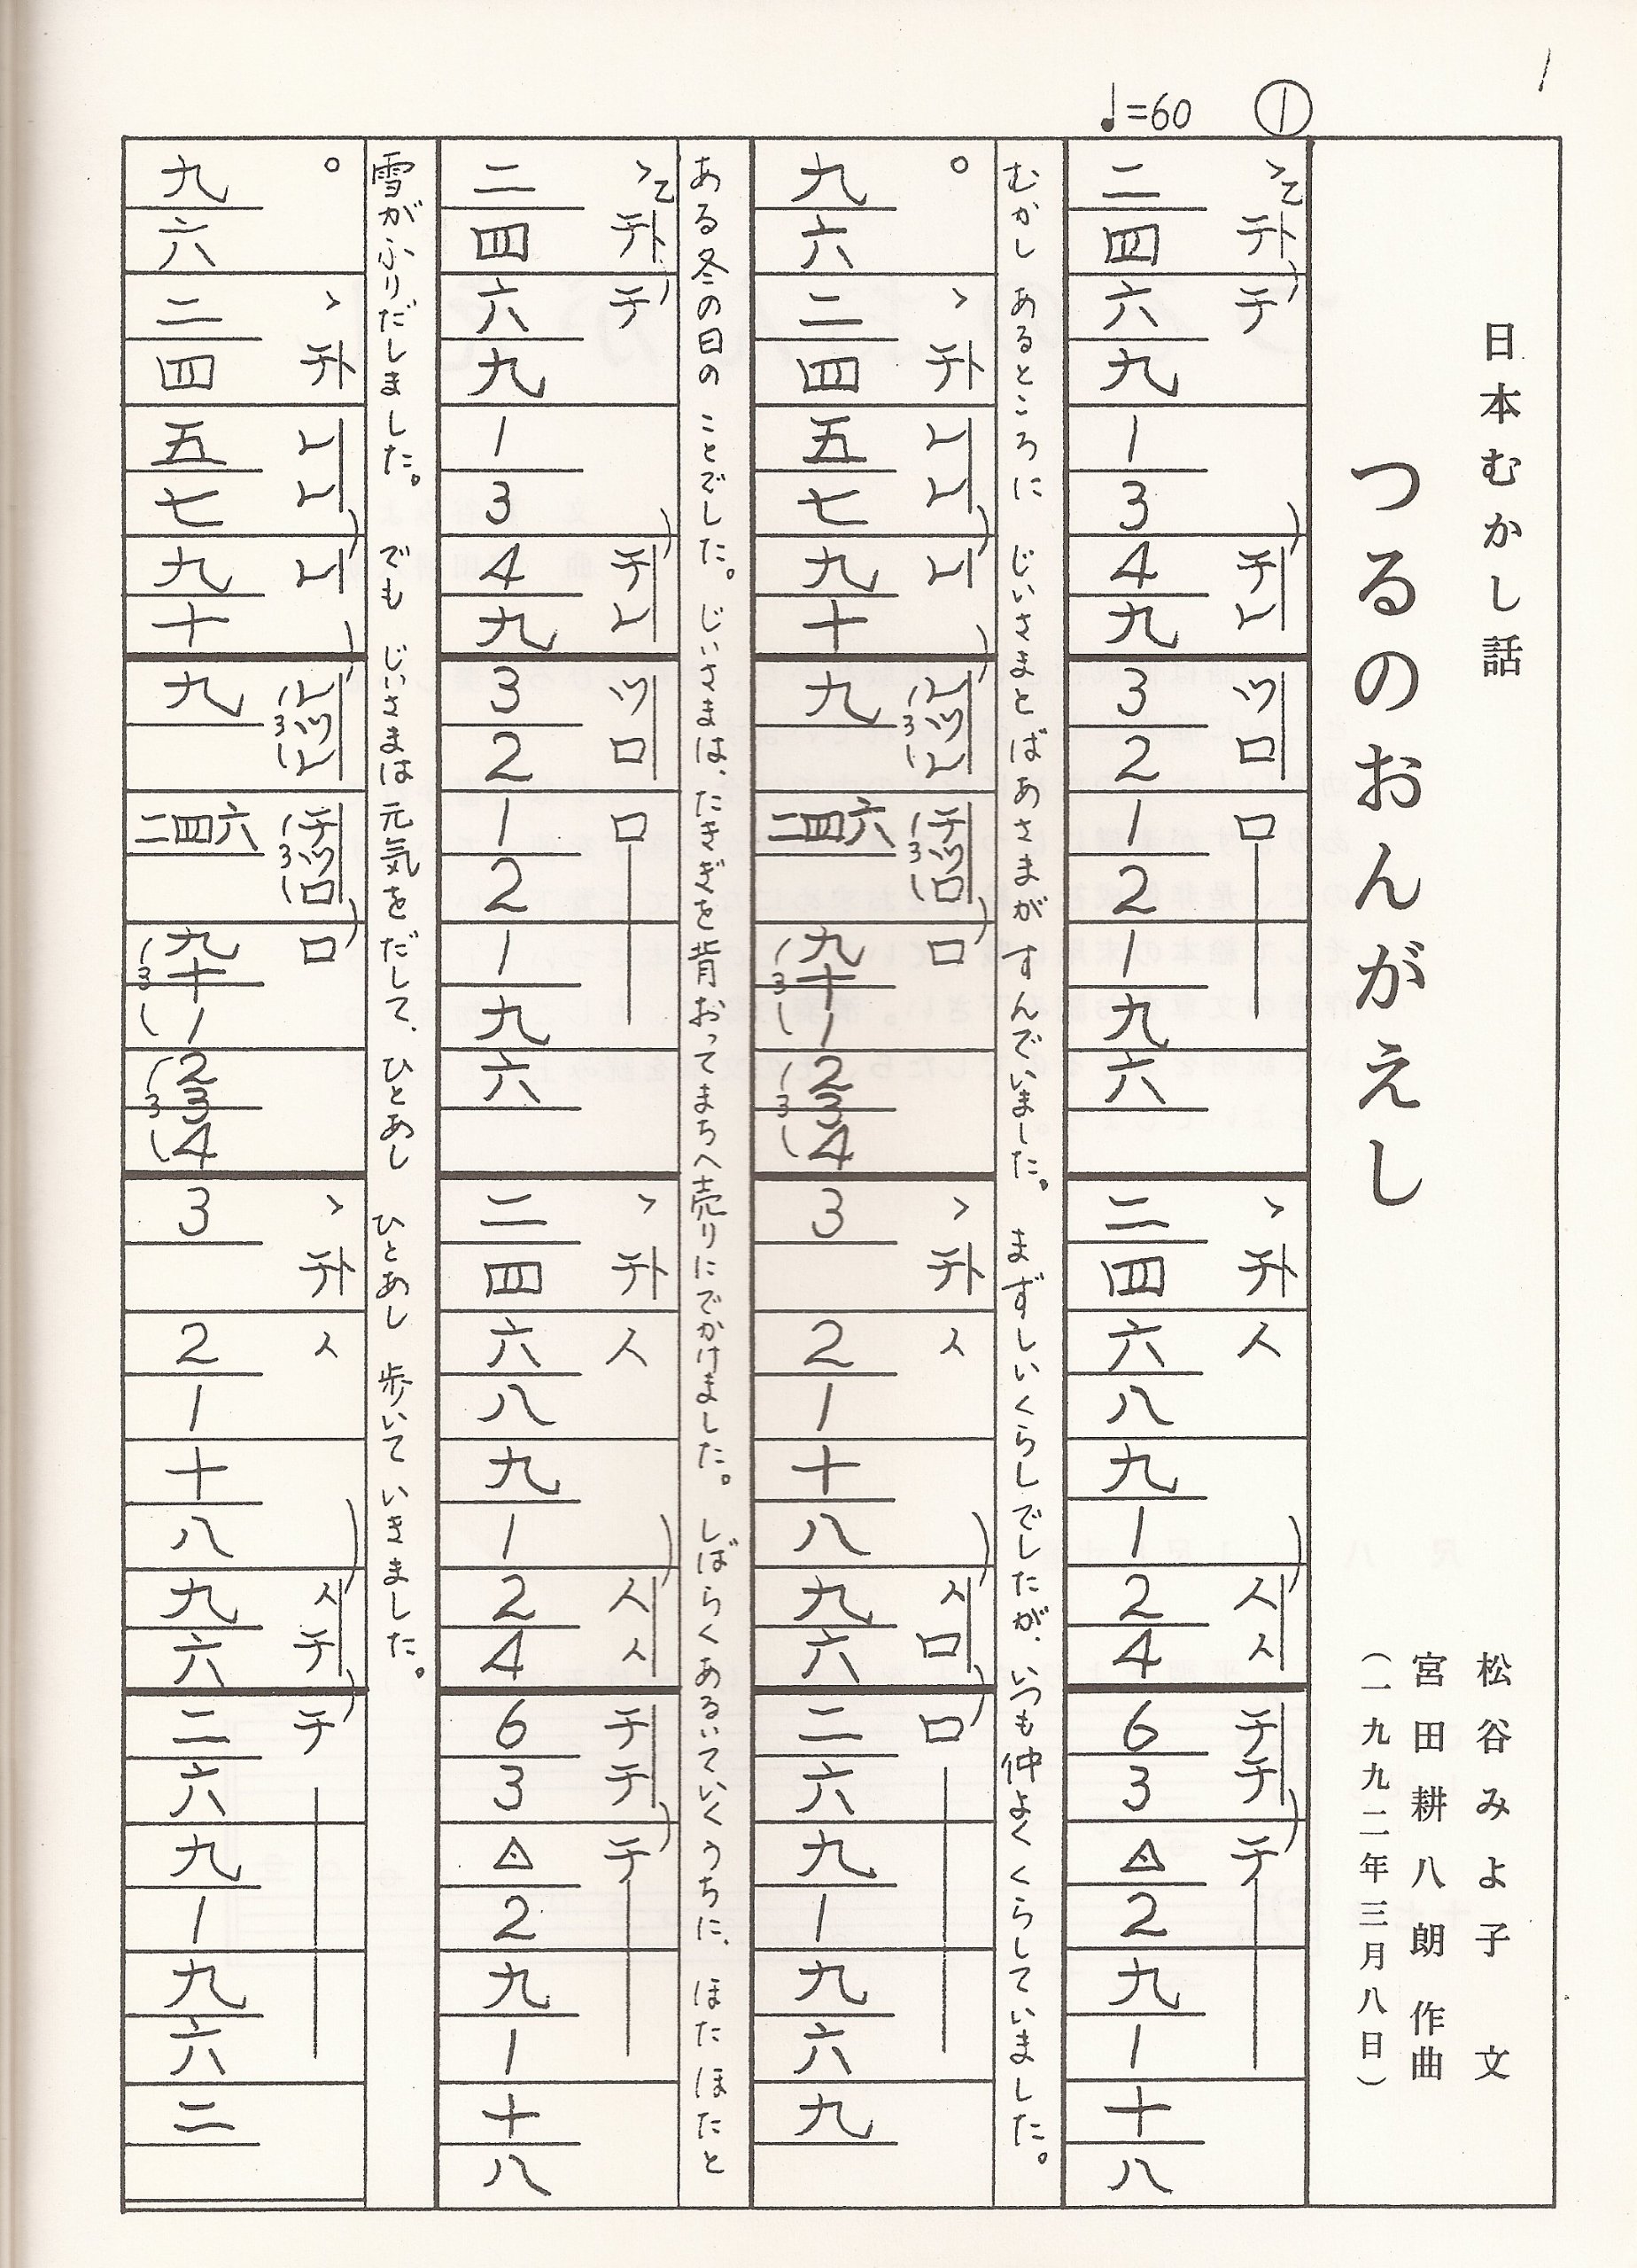 1
①
♩=60
日本むかし話
つるのおんがえし
松谷みよ子 文
宮田耕八朗 作曲
(一九九二年三月八日)
乙 チ チ レ ツ ロ ロ チ チ チ
二 四 六 九 1 3 4 九 3 2 1 2 1 九 六 二 四 六 八 九 1 2 4 6 3 △ 2 九 1 十 八
むかし あるところに じいさまとばあさまが すんでいました。 まずしいくらしでしたが、いつも仲よく くらしていました。
レ レ レ レ ツ レ 3 チ ツ ロ 3 ロ ロ ロ
九 六 二 四 五 七 九 十 九 二四六 九 十 1 3 2 3 4 3 3 2 1 十 八 九 六 二 六 九 1 九 六 九
ある冬の日の ことでした。じいさまは、たきぎを背おってまちへ売りにでかけました。 しばらくあるいていくうちに、 ほた ほたと
乙 チ チ レ ツ ロ ロ チ チ チ
二 四 六 九 1 3 4 九 3 2 1 2 1 九 六 二 四 六 八 九 1 2 4 6 3 △ 2 九 1 十 八
雪がふりだしました。 でも じいさまは元気をだして、ひとあし ひとあし 歩いて いきました。
レ レ レ レ ツ レ 3 チ ツ ロ 3 ロ チ チ
九 六 二 四 五 七 九 十 九 二四六 九 十 1 3 2 3 4 3 3 2 1 十 八 九 六 二 六 九 1 九 六 二